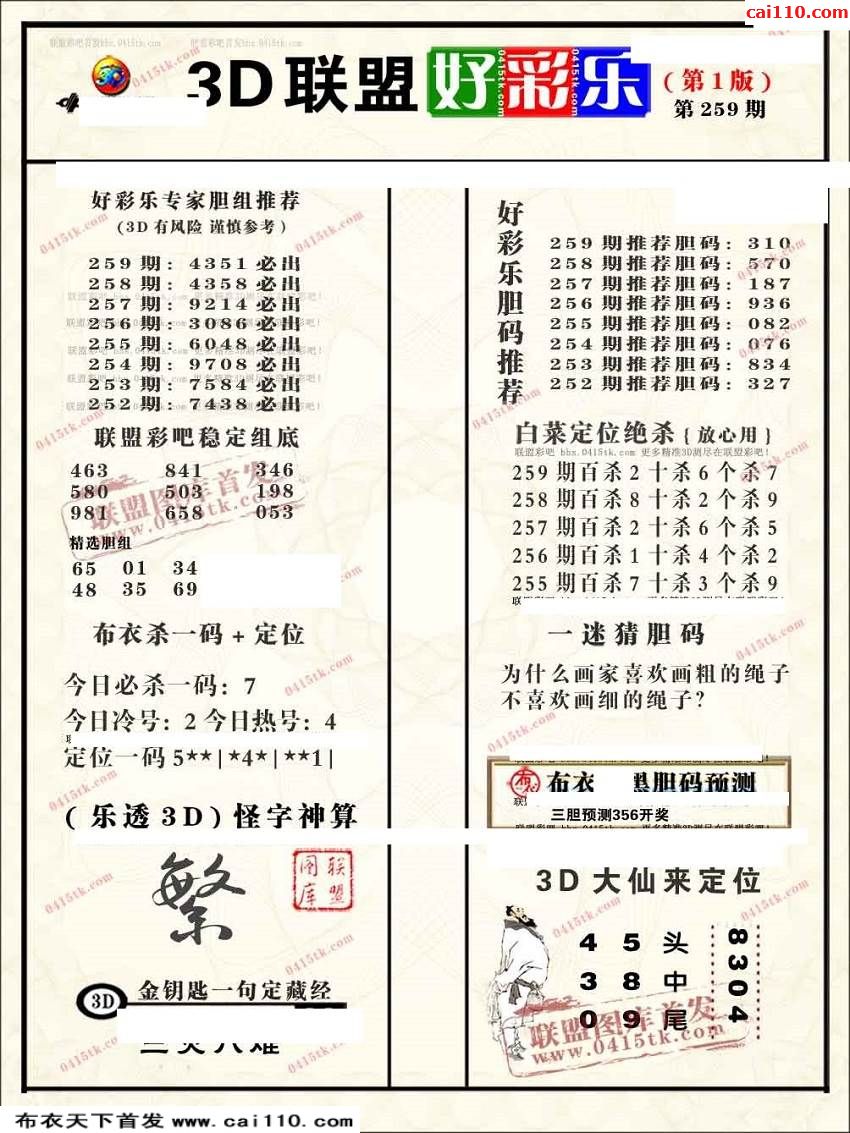 cai110.com
3D联盟好彩乐
(第1版)
第259期
好彩乐专家胆组推荐
(3D有风险 谨慎参考)
259期: 4351必出
258期: 4358必出
257期: 9214必出
256期: 3086必出
255期: 6048必出
254期: 9708必出
253期: 7584必出
252期: 7438必出
联盟彩吧稳定组底
463 841 346
580 503 198
981 658 053
精选胆组
65 01 34
48 35 69
布衣杀一码+定位
今日必杀一码: 7
今日冷号: 2 今日热号: 4
定位一码5**|*4*|**1|
(乐透3D)怪字神算
繁
联盟图库
3D 金钥匙一句定藏经
好彩乐胆码推荐
259期推荐胆码: 310
258期推荐胆码: 570
257期推荐胆码: 187
256期推荐胆码: 936
255期推荐胆码: 082
254期推荐胆码: 076
253期推荐胆码: 834
252期推荐胆码: 327
白菜定位绝杀{放心用}
联盟彩吧 bbs.0415tk.com 更多精准3D测尽在联盟彩吧!
259期百杀2十杀6个杀7
258期百杀8十杀2个杀9
257期百杀2十杀6个杀5
256期百杀1十杀4个杀2
255期百杀7十杀3个杀9
一迷猜胆码
为什么画家喜欢画粗的绳子
不喜欢画细的绳子?
布 布衣 黑胆码预测
三胆预测356开奖
3D大仙来定位
4 5 头
3 8 中
0 9 尾
8304
联盟图库首发
www.0415tk.com
布衣天下首发 www.cai110.com